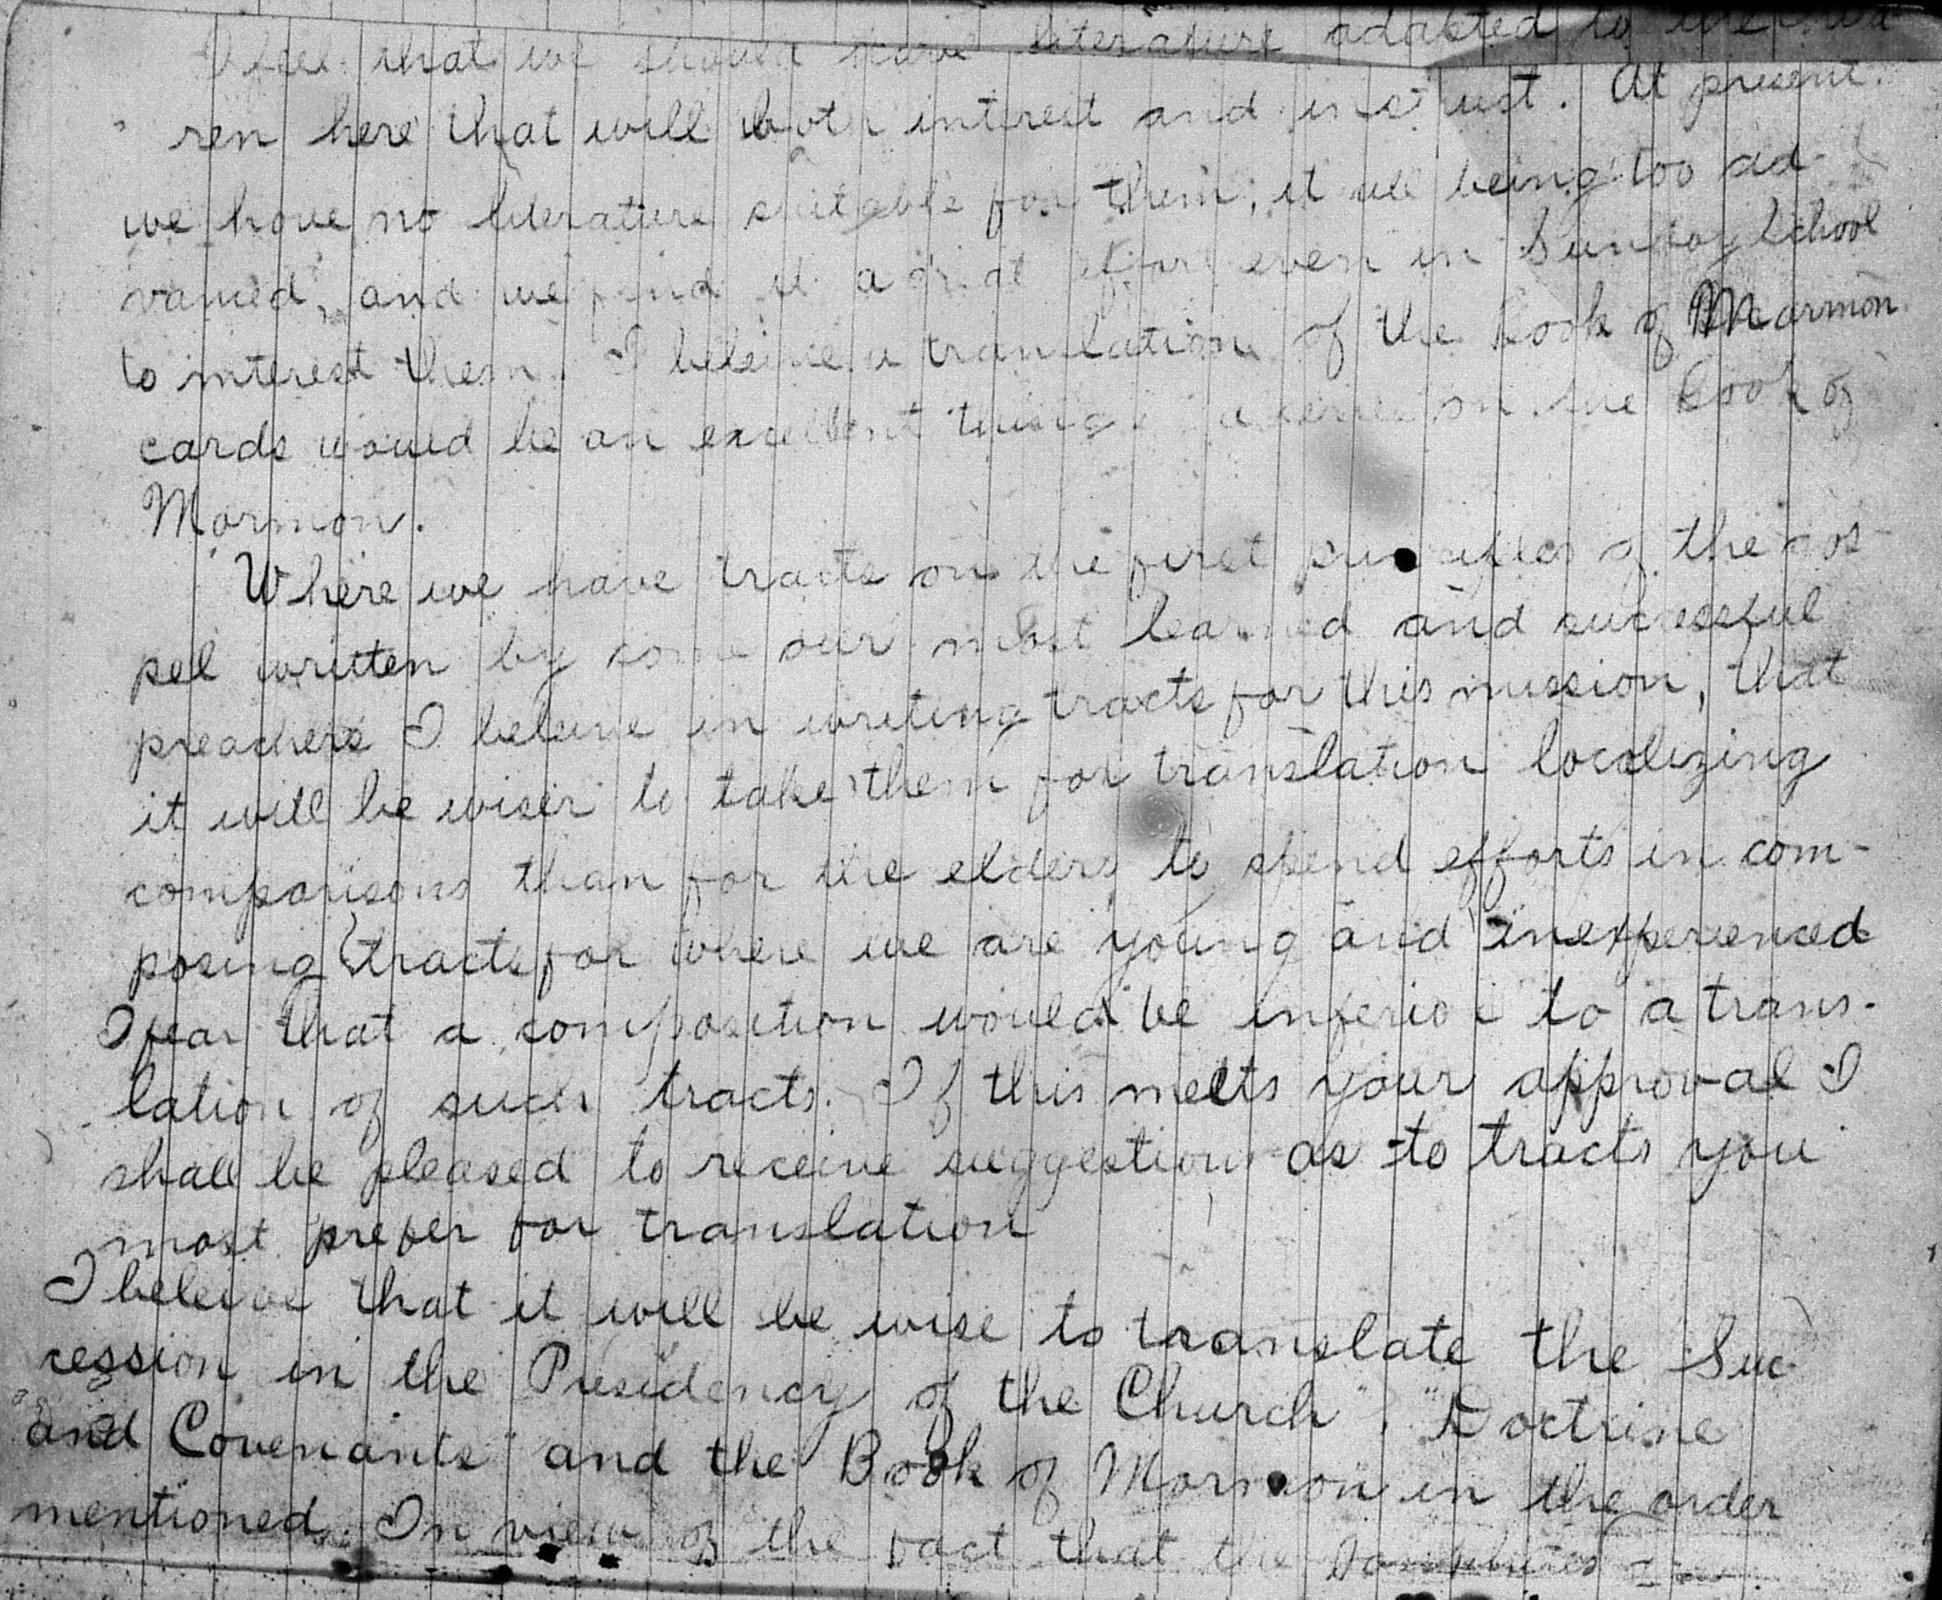 I feel that we should have literature adapted to the
ren here that will both interest and instruct. At present
we have no literature suitable for them, it all being too ad-
vanced, and we find it a great effort even in Sunday School
to interest them. I beleive a translation of the Book of Mormon
cards would be an excellent thing on the Book of
Mormon.
Where we have tracts on the first principles of the Gos-
pel written by some our most learned and successful
preachers I beleive in writing tracts for this mission, that
it will be wiser to take them for translation localizing
comparisons than for the elders to spend efforts in com-
posing tracts for where we are young and inexperienced
I fear that a composition would be inferior to a trans-
lation of such tracts. If this meets your approval I
shall be pleased to receive suggestions as to tracts you
most prefer for translation
I beleive that it will be wise to translate the Suc-
cession in the Presidency of the Church", "Doctrine
and Covenants" and the Book of Mormon in the order
mentioned. In view of the fact that the